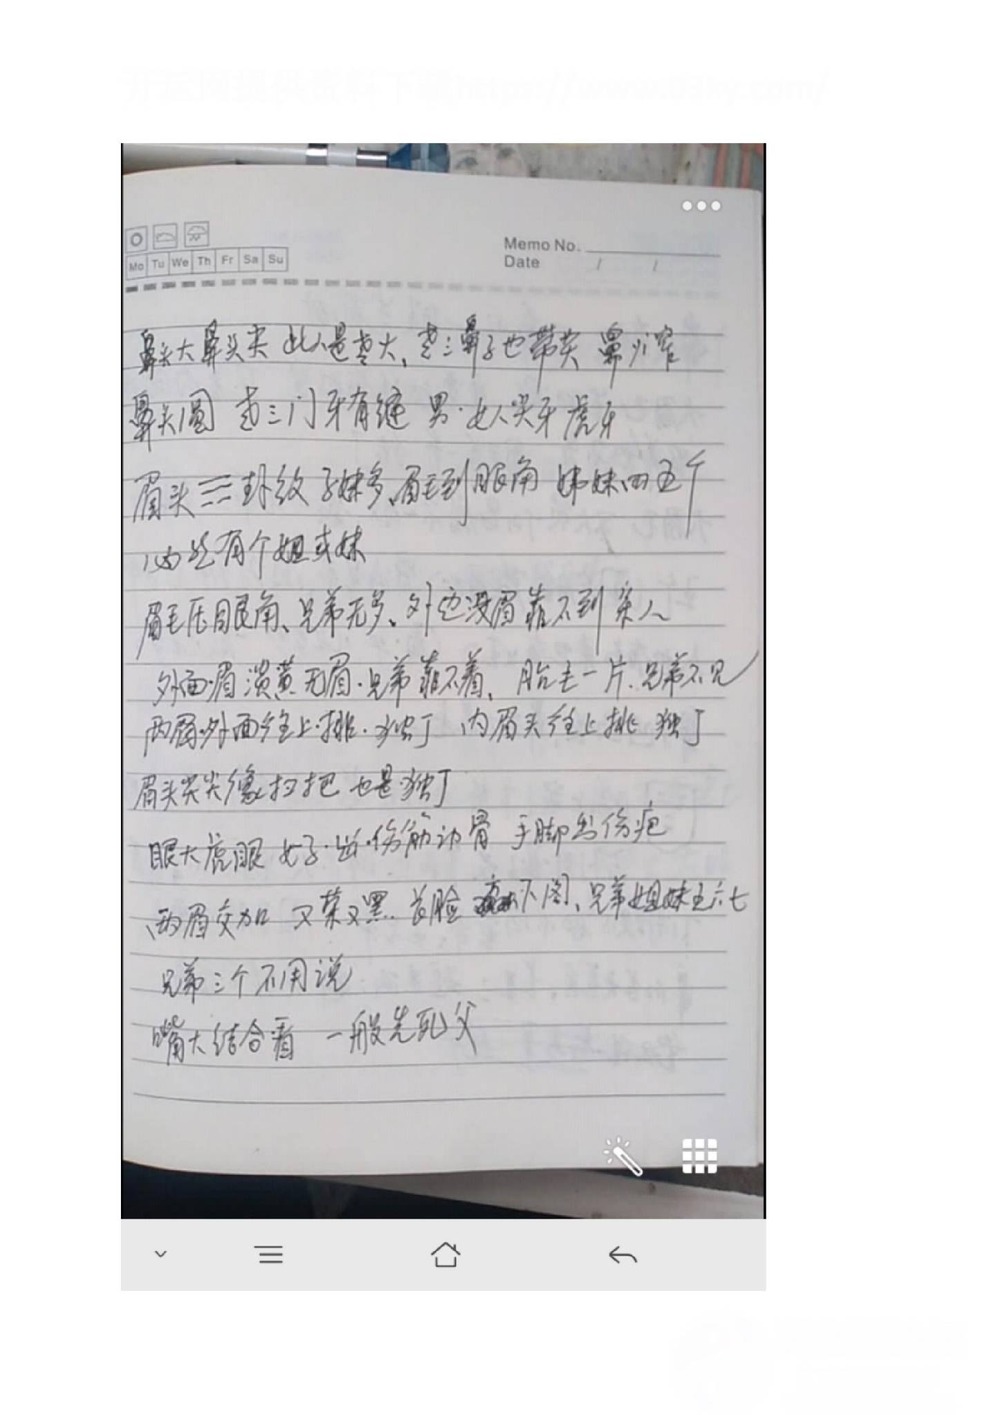 Memo No.
Date / /
Mo Tu We Th Fr Sa Su
鼻头大鼻头尖 此人是老大、老三鼻子也带尖 鼻小窄
鼻头圆 老三门牙有缝 男·女人尖牙虎牙
眉头三卦纹子妹多、眉毛到眼角 姊妹四五个
必有个姐或妹
眉毛压眼角、兄弟无多、外边没眉靠不到亲人
外面眉淡黄无眉·兄弟靠不着、胎毛一片·兄弟不见
两眉外面往上排·独丁 内眉头往上挑 独丁
眉头尖尖像扫把 也是独丁
眼大虎眼 女子·出·伤筋动骨 手脚出伤疤
两眉交加 又荣又黑 脸 下阁、兄弟姐妹五六七
兄弟三个不用说
嘴大结合看 一般先死父